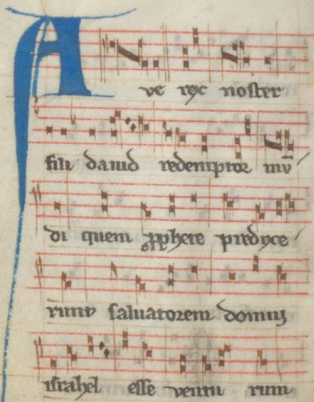 A ve rex noster
fili dauid redemptor mū
di quem ꝓphete predyxe
runt saluatorem domuj
israhel esse ventu rum